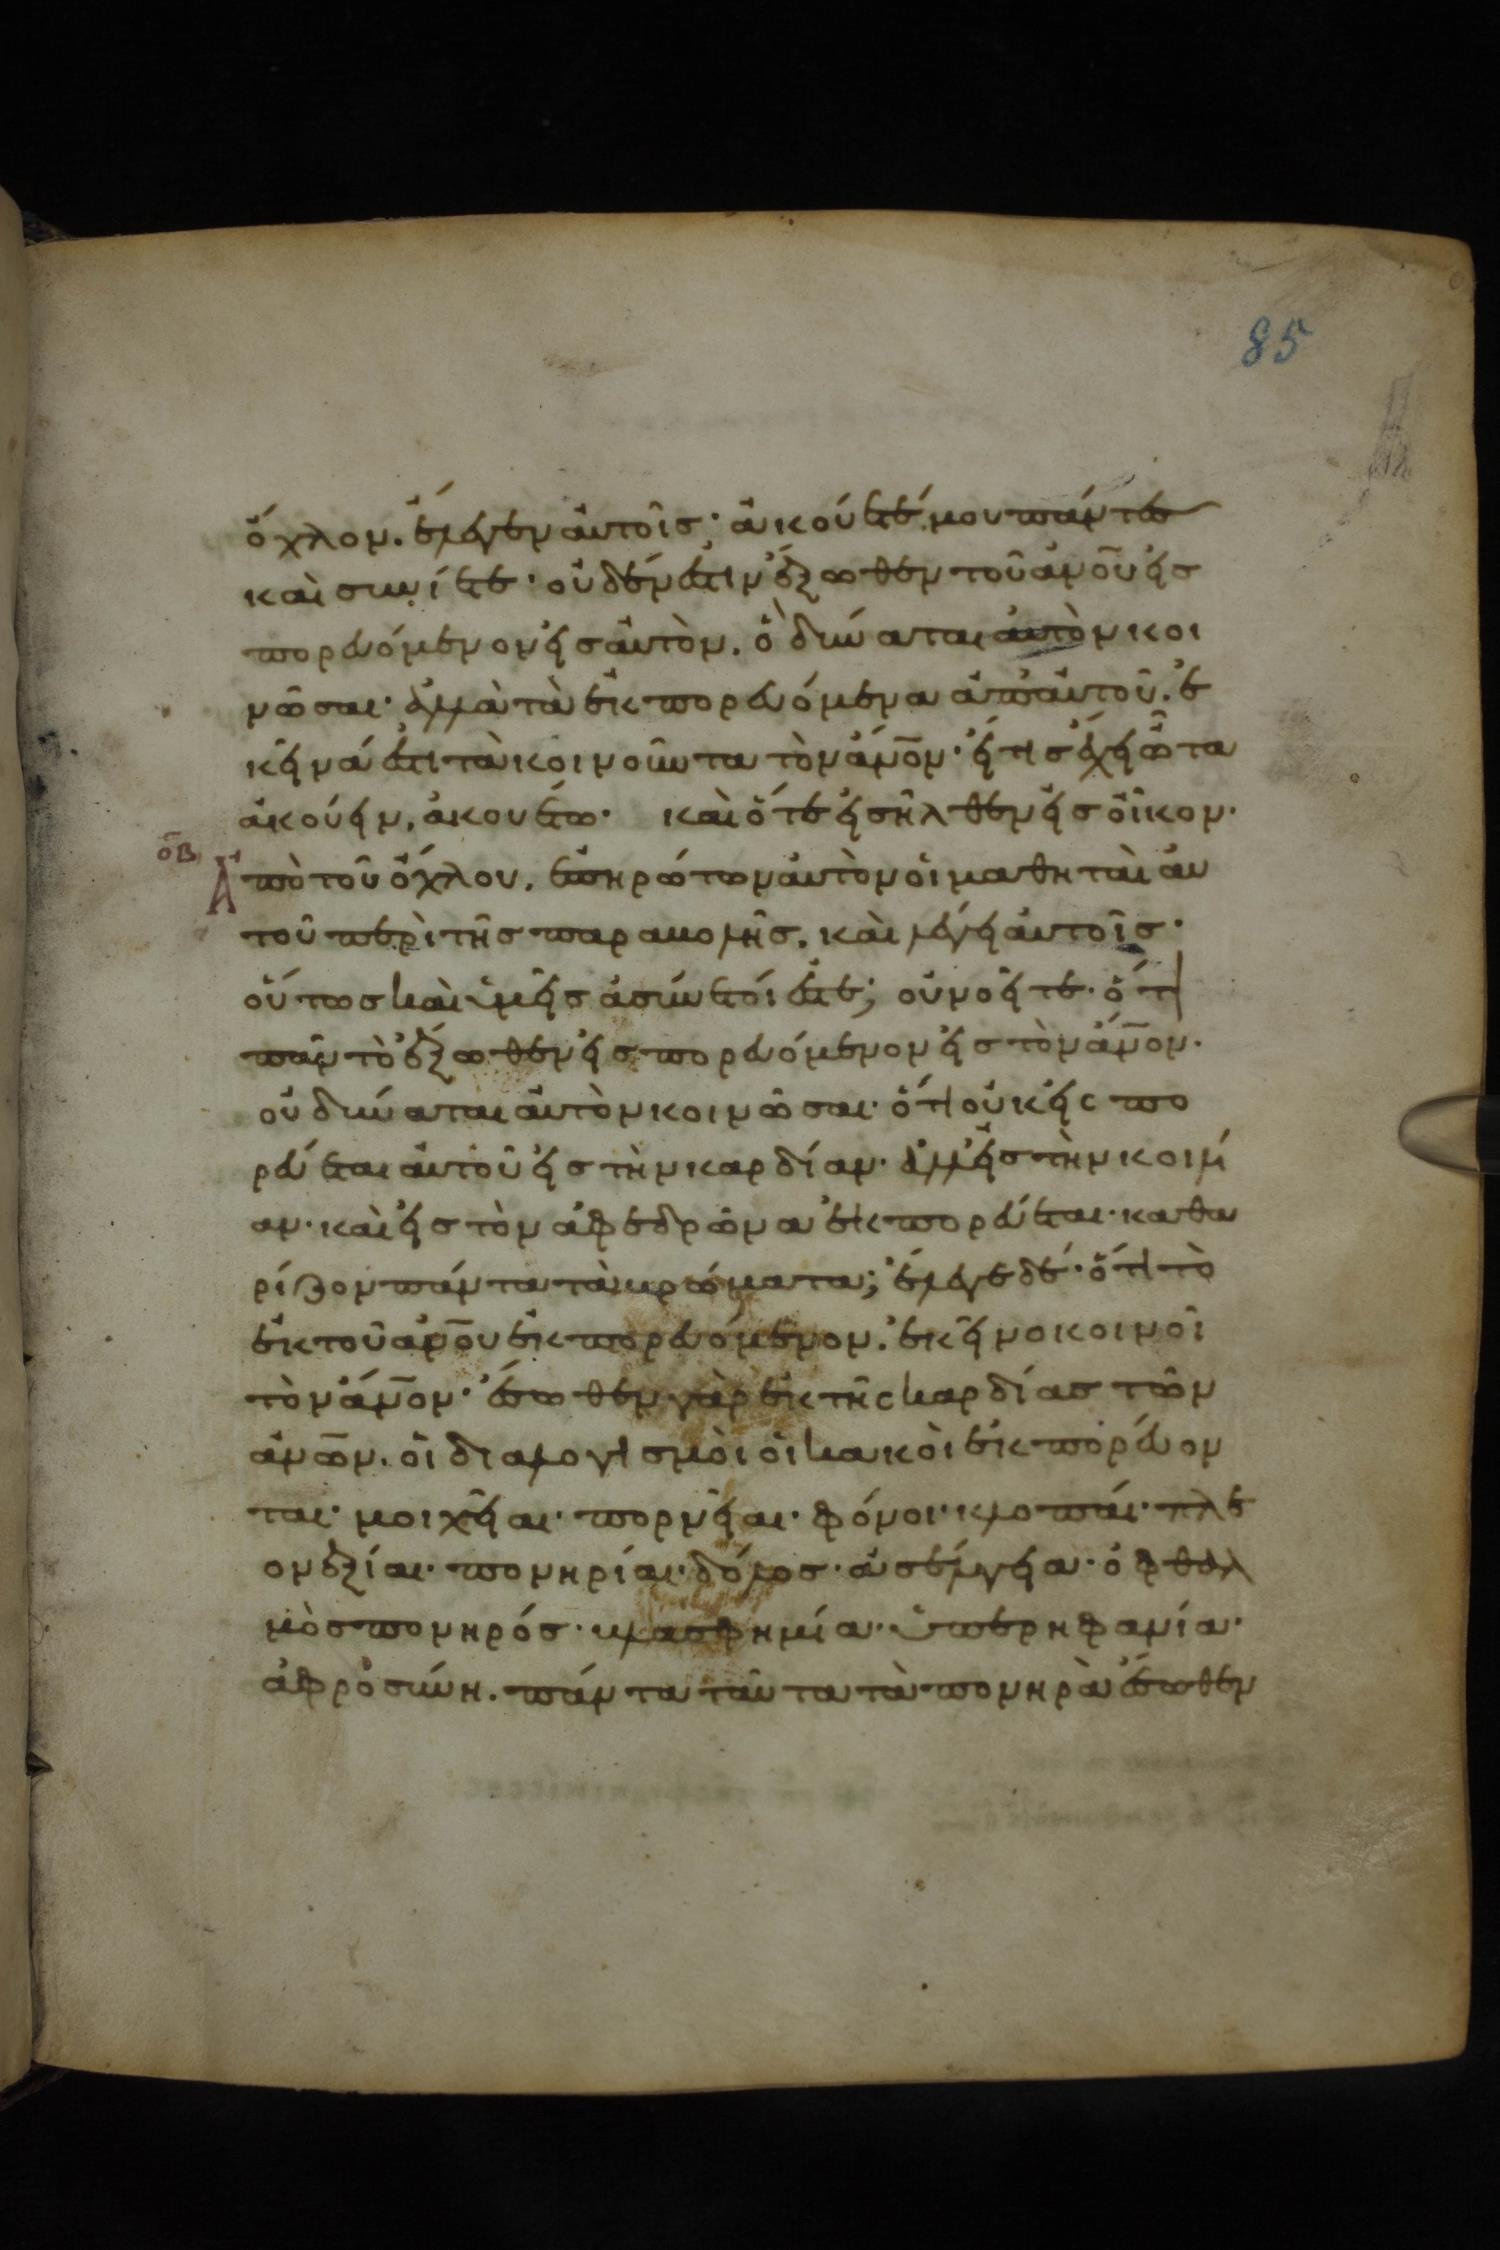 85
ὄχλον. ἔλεγεν αὐτοῖσ· ἀκούετέ μου πάντεσ
καὶ συνίετε· οὐδέν ἐστιν ἔξωθεν τοῦ ἀν̅ου εἰσ
πορευόμενον εἰσ αὐτὸν. ὃ δύναται αὐτὸν κοι
νῶσαι· ἀλλὰ τὰ ἐκπορευόμενα ἀπ' αὐτοῦ. ἐ
κεῖνά ἐστι τὰ κοινοῦντα τὸν ἄν̅ον· εἴ τισ ἔχει ὦτα
ἀκούειν, ἀκουέτω· καὶ ὅτε εἰσῆλθεν εἰσ οἶκον·
οβ
Ἀπὸ τοῦ ὄχλου, ἐπηρώτων αὐτὸν οἱ μαθηταὶ αὐ
τοῦ περὶ τῆσ παραβολῆσ. καὶ λέγει αὐτοῖσ·
οὕτωσ καὶ ὑμεῖσ ἀσύνετοί ἐστε; οὐ νοεῖτε· ὅτι
πᾶν τὸ ἔξωθεν εἰσπορευόμενον εἰσ τὸν ἄν̅ον.
οὐ δύναται αὐτὸν κοινῶσαι· ὅτι οὐκ εἰσπο
ρεύεται αὐτοῦ εἰσ τὴν καρδίαν· ἀλλ' εἰσ τὴν κοιλί
αν· καὶ εἰσ τὸν ἀφεδρῶνα ἐκπορεύεται· καθα
ρίζον πάντα τὰ βρώματα; ἔλεγε δέ· ὅτι τὸ
ἐκ τοῦ ἀν̅ου ἐκπορευόμενον. ἐκεῖνο κοινοῖ
τὸν ἄν̅ον· ἔσωθεν γὰρ ἐκ τῆσ καρδίασ τῶν
ἀν̅ων. οἱ διαλογισμοὶ οἱ κακοὶ ἐκπορεύον
ται· μοιχεῖαι· πορνεῖαι· φόνοι· κλοπαί· πλε
ονεξίαι· πονηρίαι· δόλοσ· ἀσέλγεια· ὀφθαλ
μὸσ πονηρόσ· βλασφημία· ὑπερηφανία·
ἀφροσύνη. πάντα ταῦτα τὰ πονηρὰ ἔσωθεν